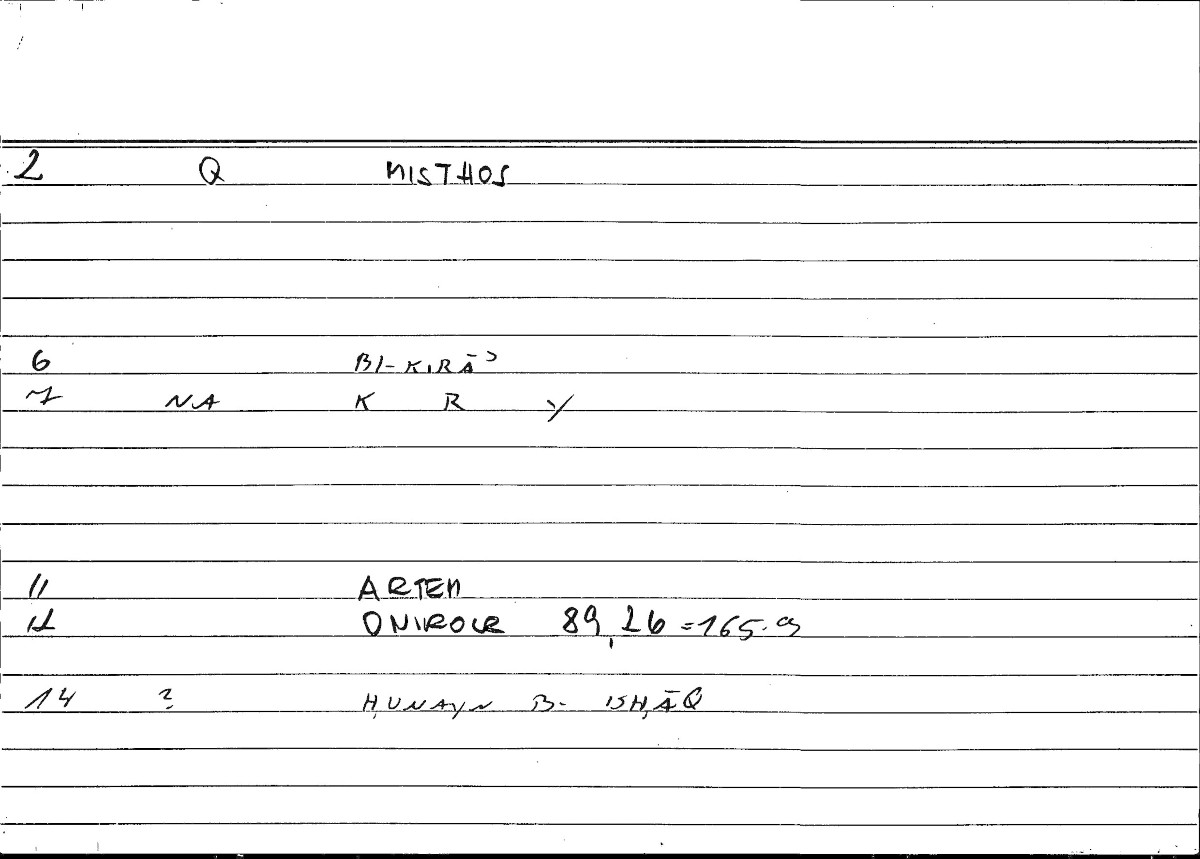 2 Q MISTHOS
6 BI-KIRĀʾ
7 NA K R Y
11 ARTEM
12 ONIROCR 89,26 = 165.9
14 ? ḤUNAYN B. ISḤĀQ